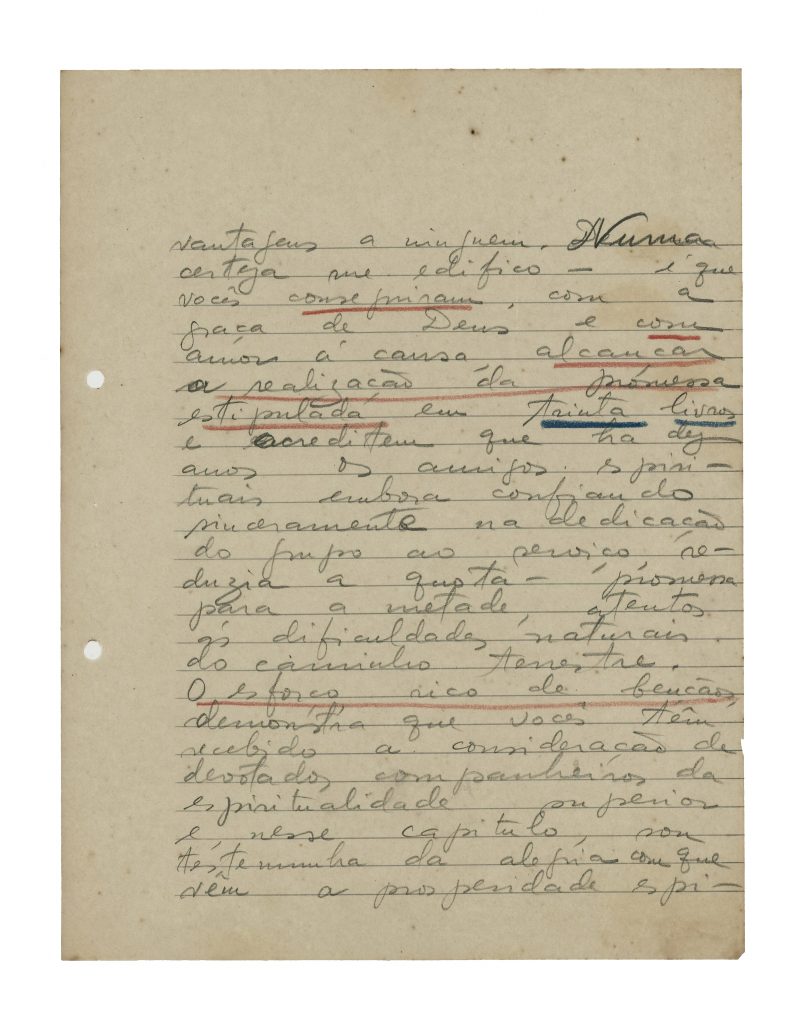 vantagens a ninguem. Numa
certeza me edifico – é que
vocês conseguiram, com a
graça de Deus e com
amôr á causa, alcançar
a realização da promessa
estipulada em trinta livros
e acreditem que ha dez
anos os amigos espiri-
tuais embora confiando
sinceramente na dedicação
do grupo ao serviço, re-
duzia a quota – promessa
para a metade, atentos
ás dificuldades naturais
do caminho terrestre.
O esforço rico de bençãos,
demonstra que vocês têm
recebido a consideração de
devotados companheiros da
espiritualidade superior
e, nesse capitulo, sou
testemunha da alegria com que
vêm a prosperidade espi-